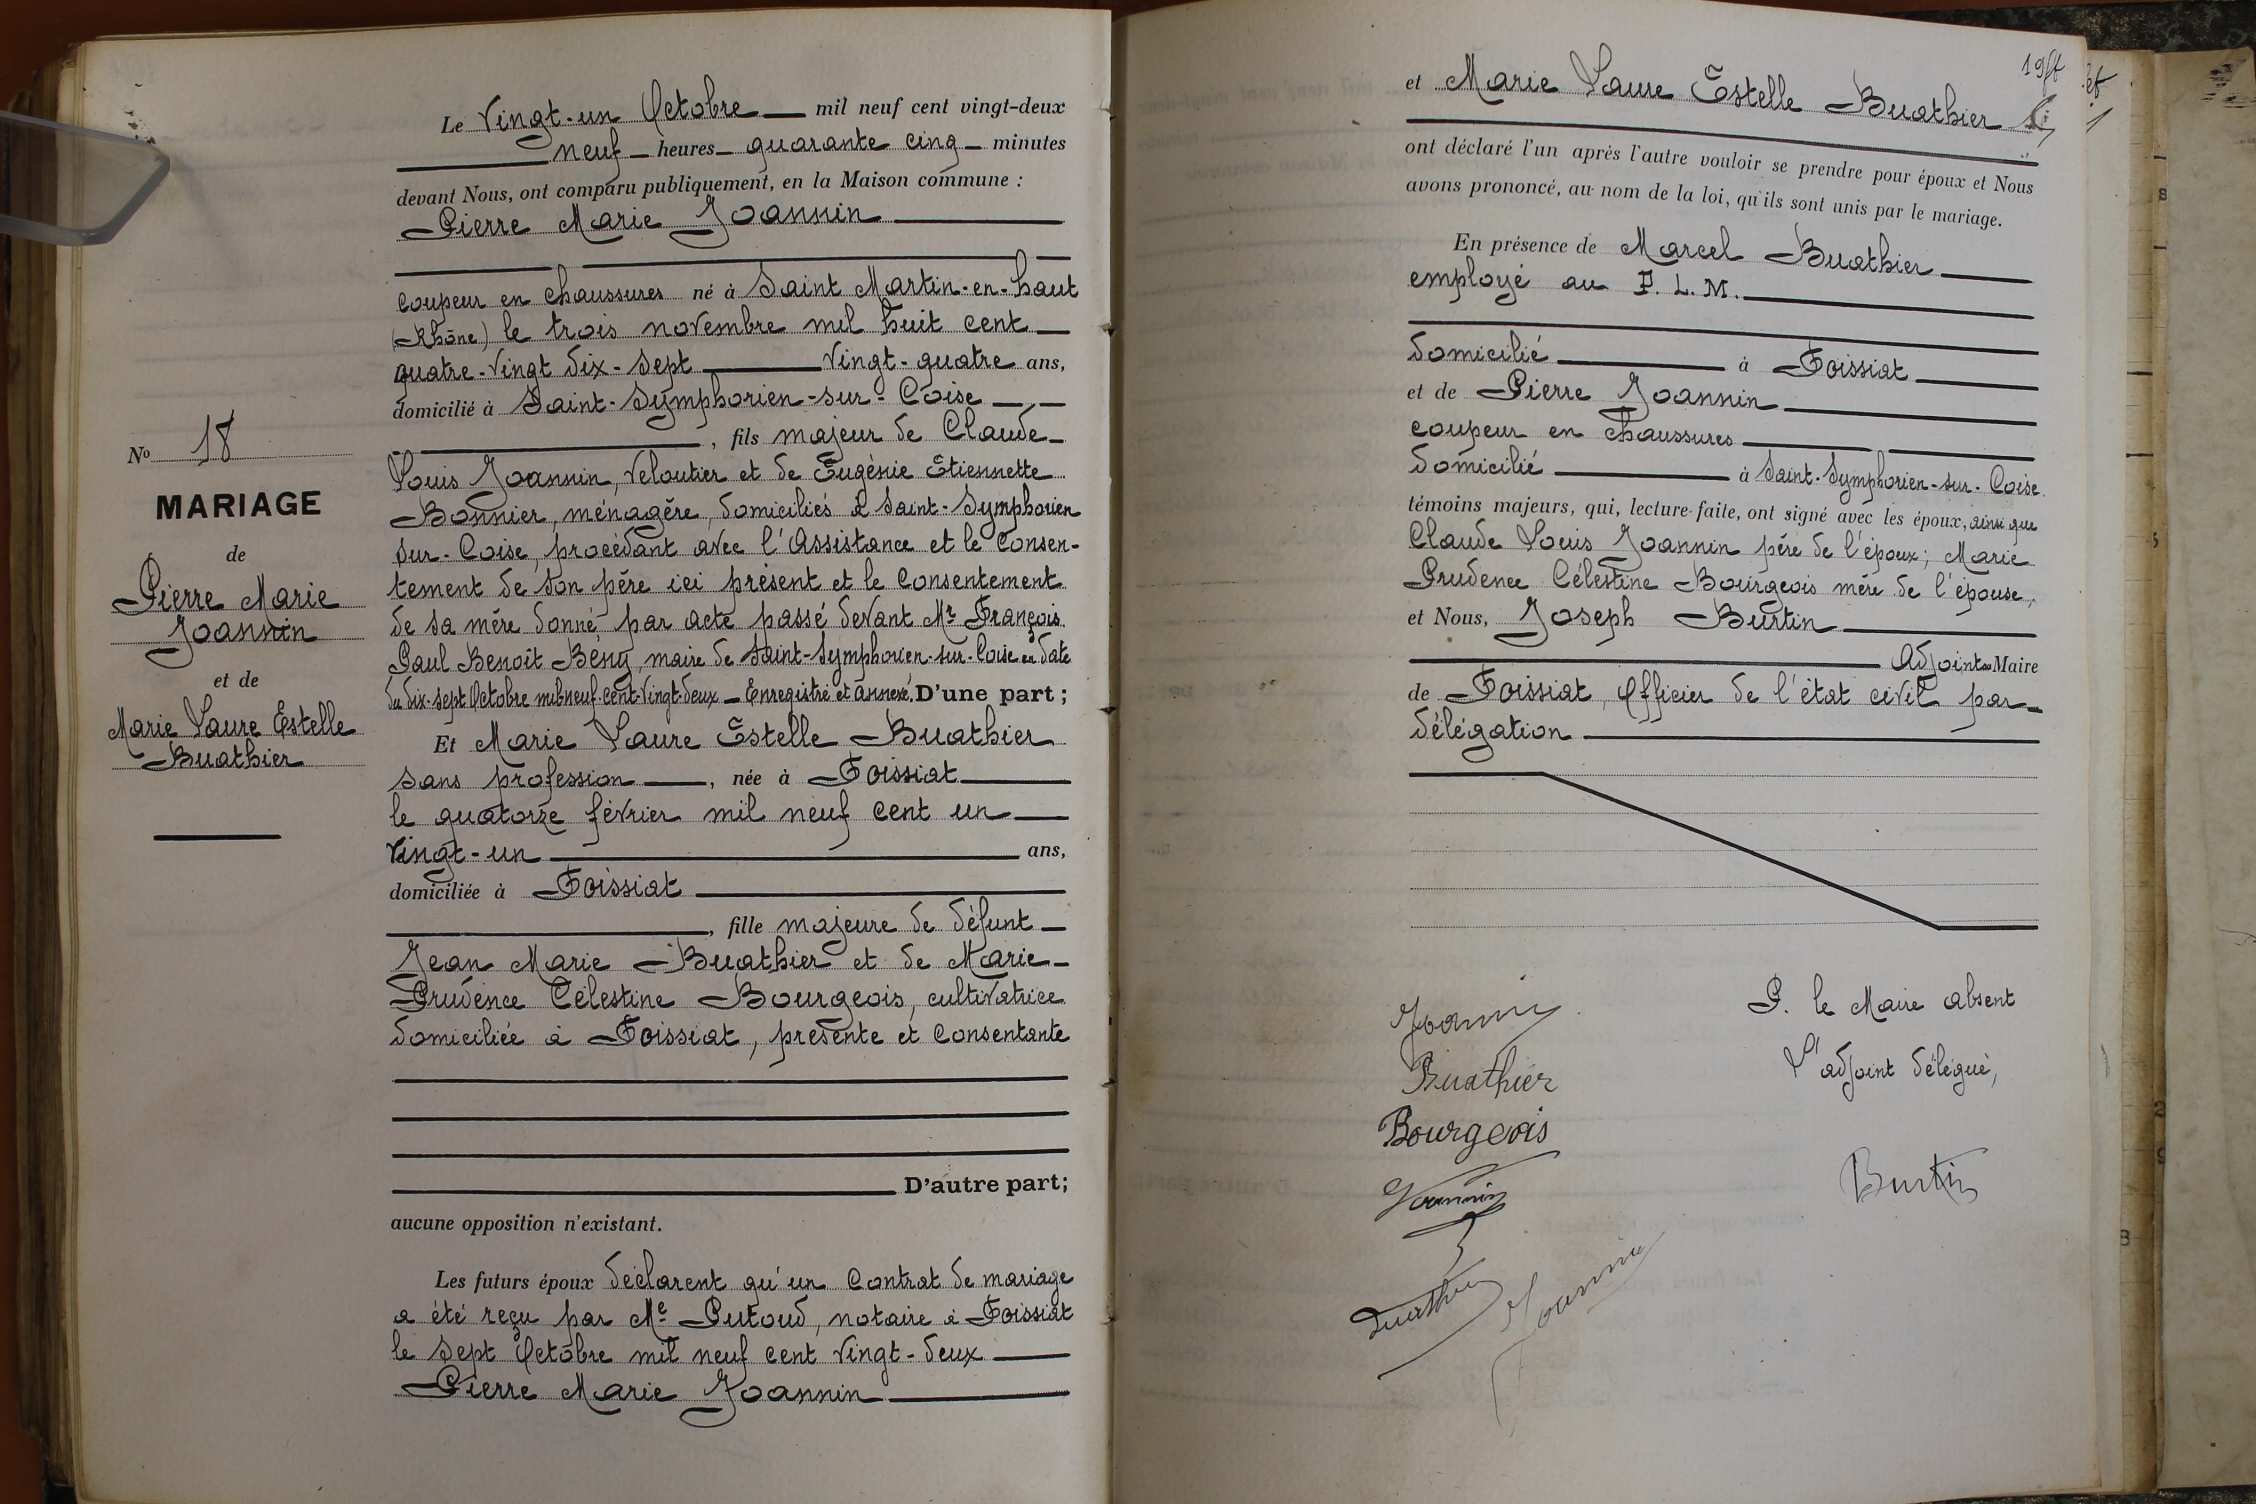 Le Vingt-un Octobre mil neuf cent vingt-deux
neuf heures quarante cinq minutes
devant Nous, ont comparu publiquement, en la Maison commune :
Pierre Marie Joannin
coupeur en chaussures né à Saint Martin-en-haut
(Rhône) le trois novembre mil huit cent
quatre-vingt dix-sept vingt-quatre ans,
domicilié à Saint-Symphorien-sur-Coise
, fils majeur de Claude
Louis Joannin, veloutier et de Eugénie Etiennette
Bonnier, ménagère, domiciliés à Saint-Symphorien
sur-Coise, procédant avec l'assistance et le consen-
tement de son père ici présent et le consentement
de sa mère donné par acte passé devant Mr François
Paul Benoît Bény, maire de Saint-Symphorien-sur-Coise en date
du dix-sept Octobre mil neuf cent vingt-deux Enregistré et annexé, D'une part ;
Et Marie Laure Estelle Buathier
sans profession, née à Foissiat
le quatorze février mil neuf cent un
vingt-un ans,
domiciliée à Foissiat
, fille majeure de défunt
Jean Marie Buathier et de Marie
Prudence Célestine Bourgeois, cultivatrice
domiciliée à Foissiat, présente et consentante
D'autre part;
aucune opposition n'existant.
Les futurs époux déclarent qu'un contrat de mariage
a été reçu par Me Putoud, notaire à Foissiat
le sept Octobre mil neuf cent vingt-deux
Pierre Marie Joannin
No 18
MARIAGE
de
Pierre Marie
Joannin
et de
Marie Laure Estelle
Buathier
et Marie Laure Estelle Buathier
ont déclaré l'un après l'autre vouloir se prendre pour époux et Nous
avons prononcé, au nom de la loi, qu'ils sont unis par le mariage.
En présence de Marcel Buathier
employé au P. L. M.
domicilié à Foissiat
et de Pierre Joannin
coupeur en chaussures
domicilié à Saint-Symphorien-sur-Coise
témoins majeurs, qui, lecture faite, ont signé avec les époux, ainsi que
Claude Louis Joannin père de l'époux; Marie
Prudence Célestine Bourgeois mère de l'épouse,
et Nous, Joseph Burtin
Adjoint au Maire
de Foissiat, Officier de l'état civil par
délégation
P. le Maire absent
L'adjoint délégué,
Joannin
Buathier
Bourgeois
Joannin
Burtin
Buathier
Joannin